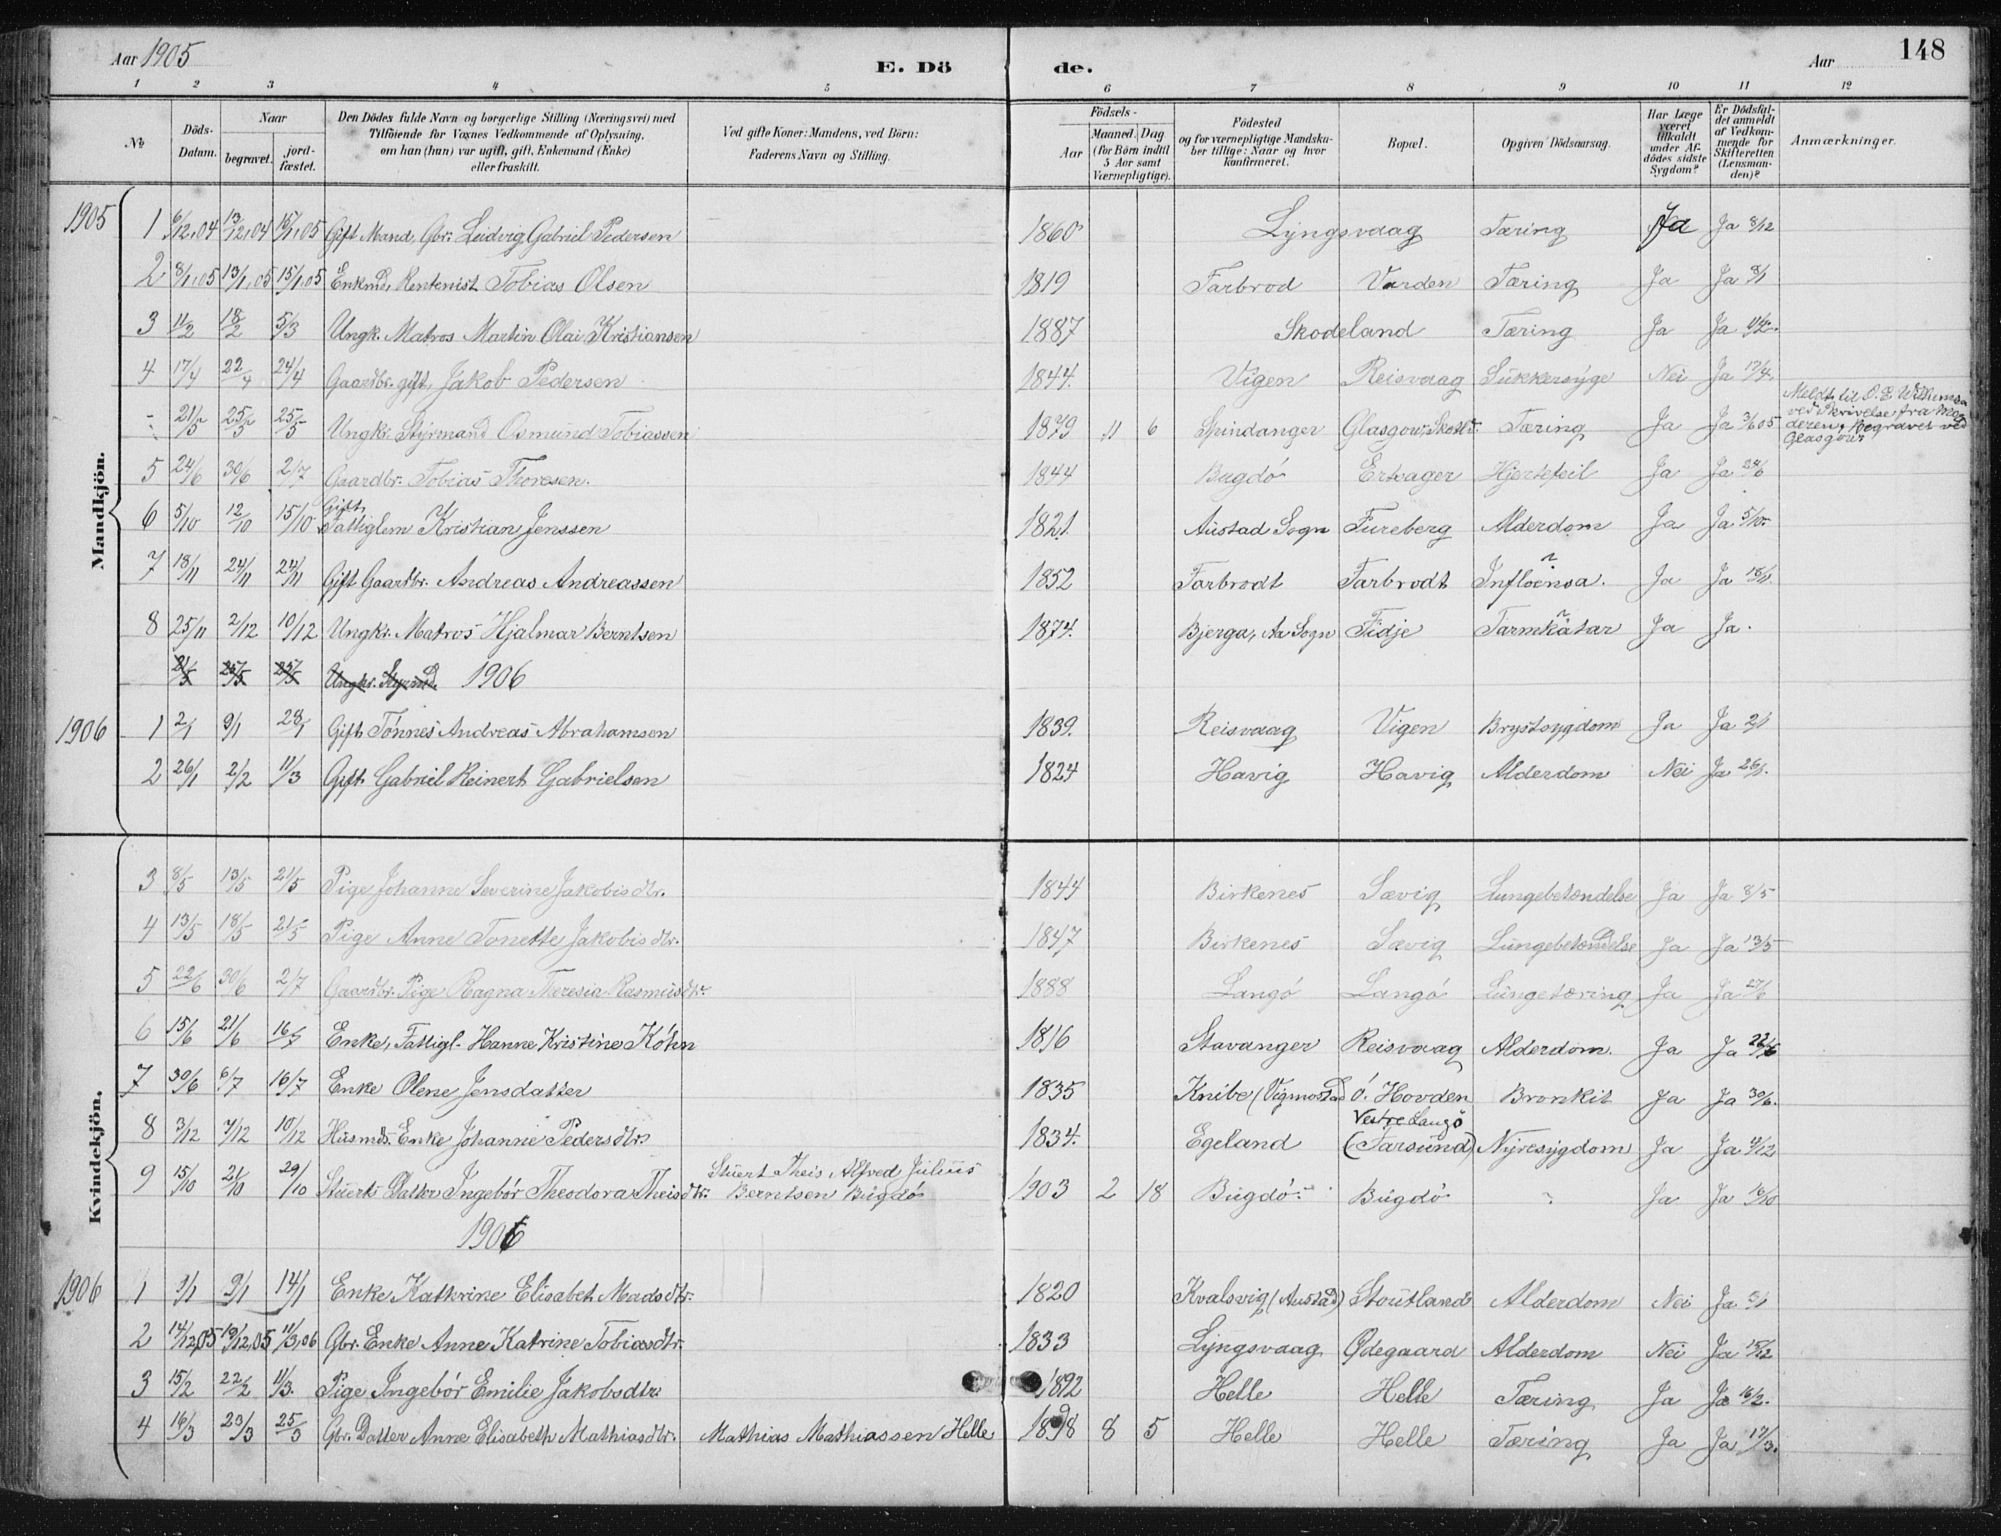 Aar 1905
E. Dö de.
Aar
148
1 2 3 4 5 6 7 8 9 10 11 12
No
Döds-Datum.
Naar
begravet.
jord-fæstet.
Den Dödes fulde Navn og borgerlige Stilling (Næringsvei) med
Tilföiende for Voxnes Vedkommende af Oplysning,
om han (hun) var ugift, gift, Enkemand (Enke)
eller fraskilt.
Ved gifte Koner: Mandens, ved Börn:
Faderens Navn og Stilling.
Födsels-
Aar
Maaned. Dag
(for Börn indtil
5 Aar samt
Værnepligtige).
Födested
og for værnepligtige Mandska-
ber tillige: Naar og hvor
konfirmeret.
Bopæl.
Opgiven Dödsaarsag.
Har Læge
været
tilkaldt
under Af-
dödes sidste
Sygdom?
Er Dödsfal-
det anmeldt
af Vedkom-
mende for
Skifteretten
(Lensman-
den)?
Anmærkninger.
Mandkjön.
1905 1 6/12,04 13/12,04 15/1,05 Gift Mand, Gbr. Ludvig Gabriel Pedersen 1860 Lyngsvaag Tæring Ja Ja 8/12
2 8/1,05 13/1,05 15/1,05 Enkmd, Rentenist Tobias Olsen 1819 Farbrod Varden Tæring Ja Ja 8/1
3 11/2 18/2 5/3 Ungk. Matros Martin Olai Kristiansen 1887 Skodeland Tæring Ja Ja 11/2.
4 17/4 22/4 24/4 Gaardbr. gift, Jakob Pedersen 1844. Vigen Reisvaag Sukkersyge Nei Ja 17/4.
21/5 25/5 25/5 Ungkr. Styrmand Osmund Tobiassen 1879 11 6 Spindanger Glasgow, Skotld. Tæring Ja Ja 3/6 05 Meldt til O. E.
ved Skrivelse fra Mo-
deren, Begravet ved
Glasgow
5 24/6 30/6 2/7 Gaardbr. Tobias Thoresen. 1844 Bugdö Ertsager Hjertefeil Ja Ja 24/6
6 5/10 12/10 15/10 Gift, Fattiglem Kristian Jenssen 1821. Austad Sogn Fureberg Alderdom Ja Ja 5/10.
7 18/11 24/11 24/11 Gift Gaardbr. Andreas Andreassen 1852 Farbrodt Farbrodt Infloensa. Ja Ja 18/11
8 25/11 2/12 10/12 Ungkr. Matros Hjalmar Berntsen 1874. Bjerga, Aa Sogn Tidje Tarmkatar Ja Ja.
21/5 25/5 25/5 Ungkr. Styrmd. 1906
1906 1 2/1 9/1 28/1 Gift Tönnes Andreas Abrahamsen 1839. Reisvaag Vigen Brystsygdom Ja Ja 2/1
2 26/1 2/2 11/3 Gift Gabriel Reinert Gabrielsen 1824 Havig Havig Alderdom Nei Ja 26/1.
Kvindekjön.
3 8/5 13/5 21/5 Pige Johanne Severine Jakobsdtr. 1844 Birkenes Sævig Lungebetændelse Ja Ja 8/5
4 13/5 18/5 21/5 Pige Anne Tonette Jakobsdtr. 1847 Birkenes Sævig Lungebetændelse Ja Ja 13/5
5 22/6 30/6 2/7 Gaardbr. Pige Ragna Theresia Rasmusdtr. 1888 Langö Langö Lungetæring Ja Ja 27/6
6 15/6 21/6 16/7 Enke, Fattigl. Hanne Kristine Köhn 1816 Stavanger Reisvaag Alderdom. Ja Ja 22/6
7 30/6 6/7 16/7 Enke Olene Jensdatter 1835 Knibe (Vigmostad Ö. Hovden Bronkit Ja Ja 30/6.
8 3/12 7/12 10/12 Husmds. Enke Johanne Pedersdtr. 1834. Egeland Vestre Langö
(Farsund) Nyresygdom Ja Ja 4/12
9 15/10 21/10 29/10 Stuerts Datter Ingebór Theodora Theisdtr. Stuert Theis Alfred Julius
Berntsen Bugdö 1903 2 18 Bugdö Bugdö Ja Ja 16/10
1906
1906 1 1/1 9/1 14/1 Enke Kathrine Elisabeth Madsdtr. 1820 Kvalsvig (Austad) Stoutland Alderdom Nei Ja 3/1
2 14/12,05 19/12,05 11/3,06 Gbr. Enke Anne Katrine Tobiasdtr. 1833 Lyngsvaag Ödegaard Alderdom Nei Ja 15/12
3 15/2 22/2 11/3. Pige Ingebór Emilie Jakobsdtr. 1892 Helle Helle Tæring Ja Ja 16/2.
4 16/3 23/3 25/3 Gbr. Datter Anne Elisabeth Mathiasdtr. Mathias Mathiassen Helle 1898 8 5 Helle Helle Tæring Ja Ja 17/3.